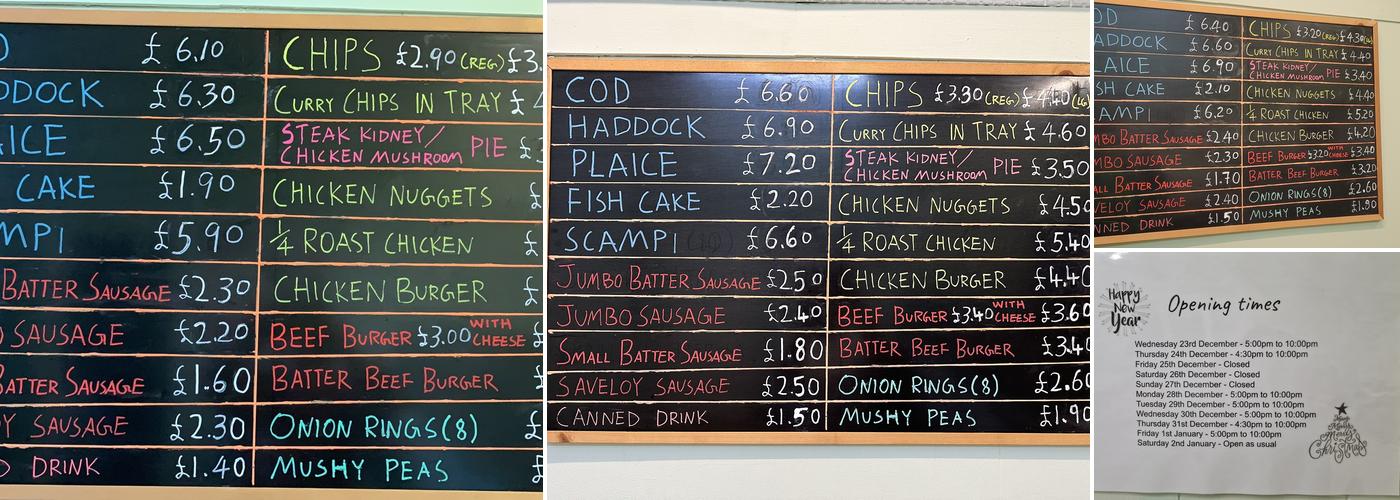 £ 6.10
DDOCK £ 6.30
ICE £ 6.50
CAKE £1.90
MPI £5.90
BATTER SAUSAGE £2.30
SAUSAGE £2.20
BATTER SAUSAGE £1.60
Y SAUSAGE £2.30
DRINK £1.40
CHIPS £2.90 (REG.) £3.
CURRY CHIPS IN TRAY £
STEAK KIDNEY/
CHICKEN MUSHROOM PIE
CHICKEN NUGGETS £
1/4 ROAST CHICKEN £
CHICKEN BURGER £
BEEF BURGER £3.00 WITH CHEESE £
BATTER BEEF BURGER £
ONION RINGS(8) £
MUSHY PEAS £
COD £ 6.60
HADDOCK £ 6.90
PLAICE £7.20
FISH CAKE £2.20
SCAMPI £6.60
JUMBO BATTER SAUSAGE £2.50
JUMBO SAUSAGE £2.40
SMALL BATTER SAUSAGE £1.80
SAVELOY SAUSAGE £2.50
CANNED DRINK £1.50
CHIPS £3.30 (REG) £4.40 (LG
CURRY CHIPS IN TRAY £ 4.60
STEAK KIDNEY/
CHICKEN MUSHROOM PIE £3.50
CHICKEN NUGGETS £4.50
1/4 ROAST CHICKEN £5.40
CHICKEN BURGER £4.40
BEEF BURGER £3.40 WITH CHEESE £3.60
BATTER BEEF BURGER £3.40
ONION RINGS(8) £2.60
MUSHY PEAS £1.90
OD £ 6.40
ADDOCK £ 6.60
LAICE £ 6.90
SH CAKE £2.10
AMPI £6.20
MBO BATTER SAUSAGE £2.40
MBO SAUSAGE £2.30
ALL BATTER SAUSAGE £1.70
VELOY SAUSAGE £2.40
NNED DRINK £1.50
CHIPS £3.20 (REG) £4.30 (LG)
CURRY CHIPS IN TRAY £ 4.40
STEAK KIDNEY/
CHICKEN MUSHROOM PIE £3.40
CHICKEN NUGGETS £4.40
1/4 ROAST CHICKEN £5.20
CHICKEN BURGER £4.20
BEEF BURGER £3.20 WITH CHEESE £3.40
BATTER BEEF BURGER £3.20
ONION RINGS(8) £2.60
MUSHY PEAS £1.90
Happy
New
Year
Opening times
Wednesday 23rd December - 5:00pm to 10:00pm
Thursday 24th December - 4:30pm to 10:00pm
Friday 25th December - Closed
Saturday 26th December - Closed
Sunday 27th December - Closed
Monday 28th December - 5:00pm to 10:00pm
Tuesday 29th December - 5:00pm to 10:00pm
Wednesday 30th December - 5:00pm to 10:00pm
Thursday 31st December - 4:30pm to 10:00pm
Friday 1st January - 5:00pm to 10:00pm
Saturday 2nd January - Open as usual
Christmas